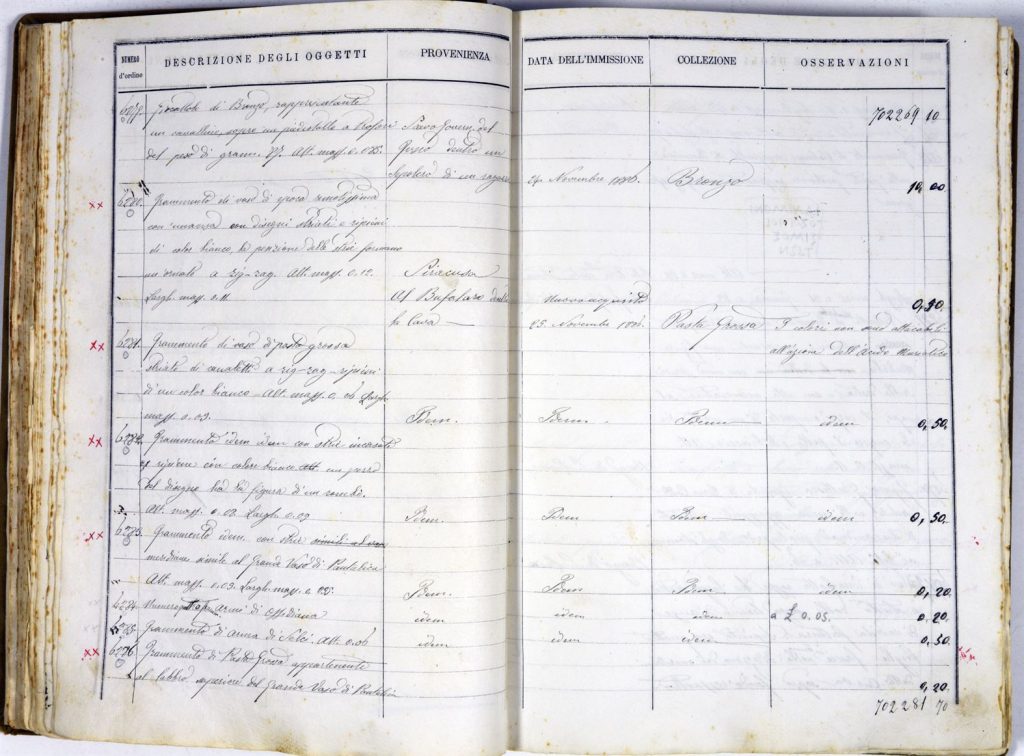 NUMERO d'ordine
DESCRIZIONE DEGLI OGGETTI
PROVENIENZA
DATA DELL'IMMISSIONE
COLLEZIONE
OSSERVAZIONI
702269 10
di Bronzo, rappresentante
un cavallino, sopra un piedistallo a
del peso di gram. 27. Alt. mass. 0.025
Scavo Govern. del
Fusco dentro un
Sepolcro di un ragazzo
24 Novembre 1886.
Bronzo
10,00
xx 6280. Frammento di vaso di epoca remotissima
con un'ansa con disegni striati e ripieni
di color bianco, la porzione delle strie formano
un ornato a zig-zag. Alt. mass. 0.12.
Largh. mass. 0.11.
Siracusa
Al Bufalaro
la Cava
Nuovo acquisto
25 Novembre 188
Pasta Grossa
I colori non sono attaccabili
all'azione dell'Acido Muriatico
0,50
xx 6281. Frammento di vaso di pasta grossa
striato di canaletti a zig-zag ripieni
d'un color bianco. Alt. mass. 0. Largh.
mass. 0.03.
Idem.
Idem.
Idem
idem
0,50.
xx 6282. Frammento idem idem con strie incavate
e ripiene con colore bianco un pezzo
del disegno ha la figura d'un rombo.
Alt. mass. 0.08. Largh. 0.09
Idem.
Idem
Idem
idem
0,50.
xx 6283. Frammento idem. con strie simili ad una
meridiana simile al Grande Vaso di Pantalica
Alt. mass. 0.09. Largh. mass. 0.02.
Idem.
Idem
Idem.
idem
0,20
6284. Numero armi di Ossidiana
idem
idem
idem
a £ 0.05.
0,20
6285. Frammento di arma di Selci. Alt. 0.06
idem
idem
idem
0,50
xx 6286. Frammento di Pasta Grossa appartenente
al labbro superiore del Grande Vaso di Pantalica
0,20
702281 70